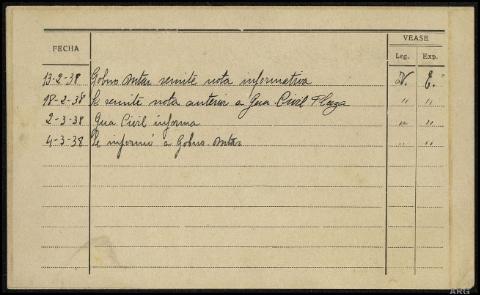 VEASE
FECHA
Leg. Exp.
13-2-38 Gobno Mtar remite nota informativa N. E.
18-2-38 Se remite nota anterior a Gua Civil Plaza " "
2-3-38 Gua Civil informa " "
4-3-38 Se informó a Gobno. Mtar " "
ARG